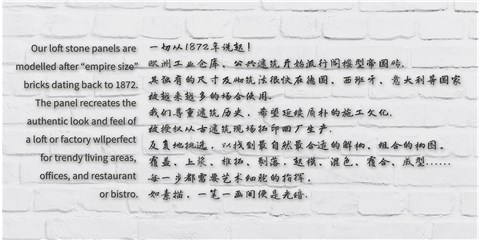 Our loft stone panels are
modelled after “empire size”
bricks dating back to 1872.
The panel recreates the
authentic look and feel of
a loft or factory wllperfect
for trendy living areas,
offices, and restaurant
or bistro.
一切从1872年说起！
欧洲工业仓库、公共建筑开始流行阁楼型帝国砖.
其独有的尺寸及砌筑法很快在德国、西班牙、意大利等国家
被越来越多的场合使用.
我们尊重建筑历史，希望延续质朴的施工文化.
被授权从古建筑现场拓印回厂生产.
反复地挑选，以找到最自然最合适的解构、组合的构图.
覆盖、上浆、椎拓、剥落、起模、混色、覆合、成型……
每一步都需要艺术细胞的指挥，
如素描，一笔一画间便是光暗.